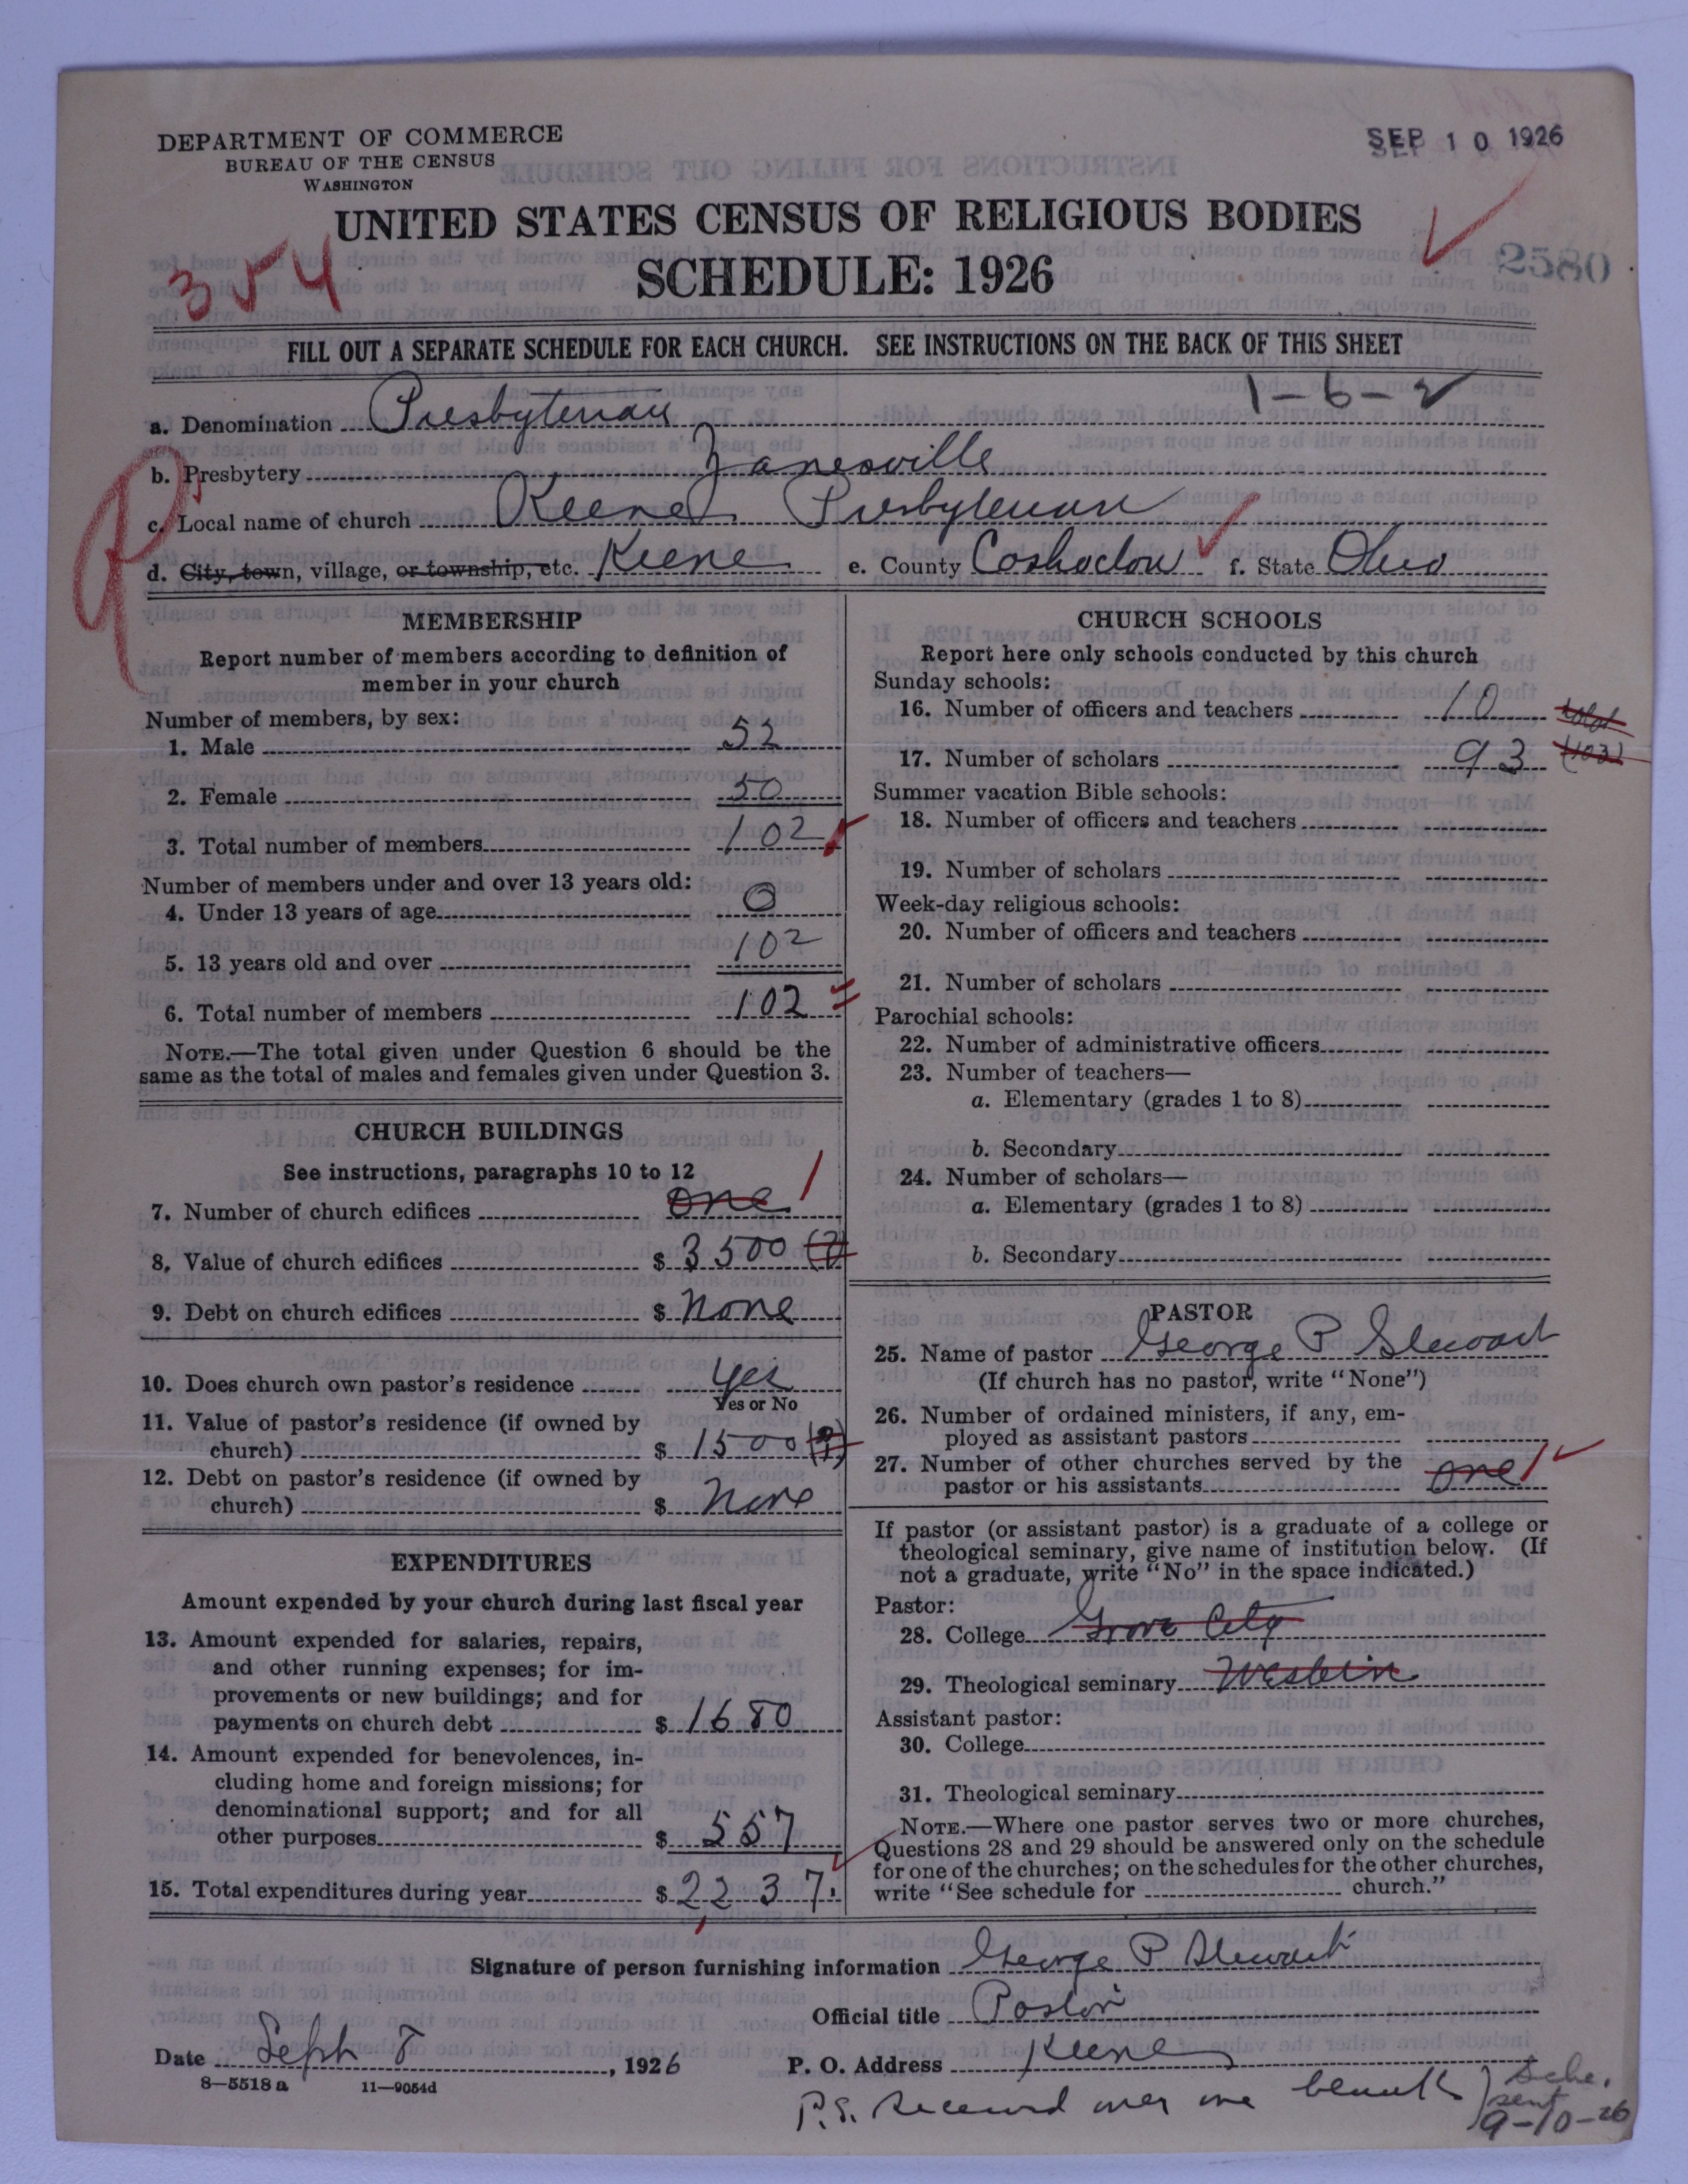 DEPARTMENT OF COMMERCE
BUREAU OF THE CENSUS
WASHINGTON
SEP 10 1926
UNITED STATES CENSUS OF RELIGIOUS BODIES
SCHEDULE: 1926
2580
354
FILL OUT A SEPARATE SCHEDULE FOR EACH CHURCH. SEE INSTRUCTIONS ON THE BACK OF THIS SHEET
1-6-2
a. Denomination Presbyterian
b. Presbytery Zanesville
c. Local name of church Keene Presbyterian
d. City, town, village, or township, etc. Keene e. County Coshocton f. State Ohio
MEMBERSHIP
Report number of members according to definition of
member in your church
Number of members, by sex:
1. Male 52
2. Female 50
3. Total number of members 102
Number of members under and over 13 years old:
4. Under 13 years of age 0
5. 13 years old and over 102
6. Total number of members 102
NOTE.—The total given under Question 6 should be the
same as the total of males and females given under Question 3.
CHURCH BUILDINGS
See instructions, paragraphs 10 to 12
7. Number of church edifices one 1
8. Value of church edifices $ 3500 (?)
9. Debt on church edifices $ none
10. Does church own pastor's residence yes
Yes or No
11. Value of pastor's residence (if owned by
church) $ 1500 (?)
12. Debt on pastor's residence (if owned by
church) $ none
EXPENDITURES
Amount expended by your church during last fiscal year
13. Amount expended for salaries, repairs,
and other running expenses; for im-
provements or new buildings; and for
payments on church debt $ 1680
14. Amount expended for benevolences, in-
cluding home and foreign missions; for
denominational support; and for all
other purposes $ 557
15. Total expenditures during year $ 2237.
CHURCH SCHOOLS
Report here only schools conducted by this church
Sunday schools:
16. Number of officers and teachers 10 total
17. Number of scholars 93 (103)
Summer vacation Bible schools:
18. Number of officers and teachers
19. Number of scholars
Week-day religious schools:
20. Number of officers and teachers
21. Number of scholars
Parochial schools:
22. Number of administrative officers
23. Number of teachers—
a. Elementary (grades 1 to 8)
b. Secondary
24. Number of scholars—
a. Elementary (grades 1 to 8)
b. Secondary
PASTOR
25. Name of pastor George P Stewart
(If church has no pastor, write "None")
26. Number of ordained ministers, if any, em-
ployed as assistant pastors
27. Number of other churches served by the
pastor or his assistants one 1
If pastor (or assistant pastor) is a graduate of a college or
theological seminary, give name of institution below. (If
not a graduate, write "No" in the space indicated.)
Pastor:
28. College Grove City
29. Theological seminary Western
Assistant pastor:
30. College
31. Theological seminary
NOTE.—Where one pastor serves two or more churches,
Questions 28 and 29 should be answered only on the schedule
for one of the churches; on the schedules for the other churches,
write "See schedule for church."
Signature of person furnishing information George P Stewart
Official title Pastor
Date Sept 8, 1926
P. O. Address Keene
8-5518 a 11-9054d
P.S. Received only one blank
Sche.
sent
9-10-26